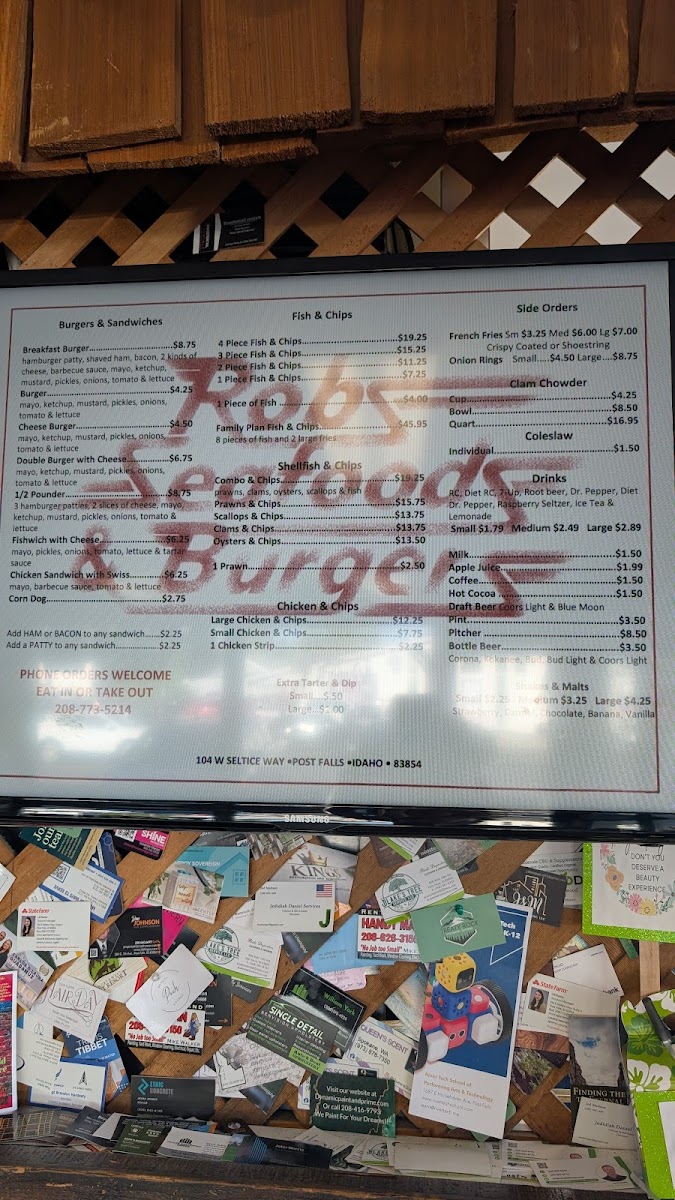 Robs
Seafoods
& Burgers
Burgers & Sandwiches
Breakfast Burger.....$8.75
hamburger patty, shaved ham, bacon, 2 kinds of
cheese, barbecue sauce, mayo, ketchup,
mustard, pickles, onions, tomato & lettuce
Burger.....$4.25
mayo, ketchup, mustard, pickles, onions,
tomato & lettuce
Cheese Burger.....$4.50
mayo, ketchup, mustard, pickles, onions,
tomato & lettuce
Double Burger with Cheese.....$6.75
mayo, ketchup, mustard, pickles, onions,
tomato & lettuce
1/2 Pounder.....$8.75
3 hamburger patties, 2 slices of cheese, mayo,
ketchup, mustard, pickles, onions, tomato &
lettuce
Fishwich with Cheese.....$6.25
mayo, pickles, onions, tomato, lettuce & tartar
sauce
Chicken Sandwich with Swiss.....$6.25
mayo, barbecue sauce, tomato & lettuce
Corn Dog.....$2.75
Add HAM or BACON to any sandwich.....$2.25
Add a PATTY to any sandwich.....$2.25
PHONE ORDERS WELCOME
EAT IN OR TAKE OUT
208-773-5214
Fish & Chips
4 Piece Fish & Chips.....$19.25
3 Piece Fish & Chips.....$15.25
2 Piece Fish & Chips.....$11.25
1 Piece Fish & Chips.....$7.25
1 Piece of Fish.....$4.00
Family Plan Fish & Chips.....$45.95
8 pieces of fish and 2 large fries
Shellfish & Chips
Combo & Chips.....$19.25
prawns, clams, oysters, scallops & fish
Prawns & Chips.....$15.75
Scallops & Chips.....$13.75
Clams & Chips.....$13.75
Oysters & Chips.....$13.50
1 Prawn.....$2.50
Chicken & Chips
Large Chicken & Chips.....$12.25
Small Chicken & Chips.....$7.75
1 Chicken Strip.....$2.25
Extra Tarter & Dip
Small....$.50
Large...$1.00
Side Orders
French Fries Sm $3.25 Med $6.00 Lg $7.00
Crispy Coated or Shoestring
Onion Rings Small.....$4.50 Large....$8.75
Clam Chowder
Cup.....$4.25
Bowl.....$8.50
Quart.....$16.95
Coleslaw
Individual.....$1.50
Drinks
RC, Diet RC, 7-Up, Root beer, Dr. Pepper, Diet
Dr. Pepper, Raspberry Seltzer, Ice Tea &
Lemonade
Small $1.79 Medium $2.49 Large $2.89
Milk.....$1.50
Apple Juice.....$1.99
Coffee.....$1.50
Hot Cocoa.....$1.50
Draft Beer Coors Light & Blue Moon
Pint.....$3.50
Pitcher.....$8.50
Bottle Beer.....$3.50
Corona, Kokanee, Bud, Bud Light & Coors Light
Shakes & Malts
Small $2.25 Medium $3.25 Large $4.25
Strawberry, Chocolate, Banana, Vanilla
104 W SELTICE WAY •POST FALLS •IDAHO • 83854
SAMSUNG
SHINE
KINGS
Jedidiah Daniel Services
StateFarm
JOHNSON
HANDY
208-626-315
"No Job too Small"
K-12
DON'T YOU
DESERVE A
BEAUTY
EXPERIENCE
StateFarm
HAIR DAY
Posh
TIBBET
William York
SINGLE DETAIL
QUEEN'S SCENT
Spokane, WA
MIKE WALKER
ETHIC
CONCRETE
Visit our website at
Dynamicpaintandprime.com
Or call 208-416-9793
We Paint For Your Dreams!
Performing Arts & Technology
FINDING THE
Jedidiah Daniel